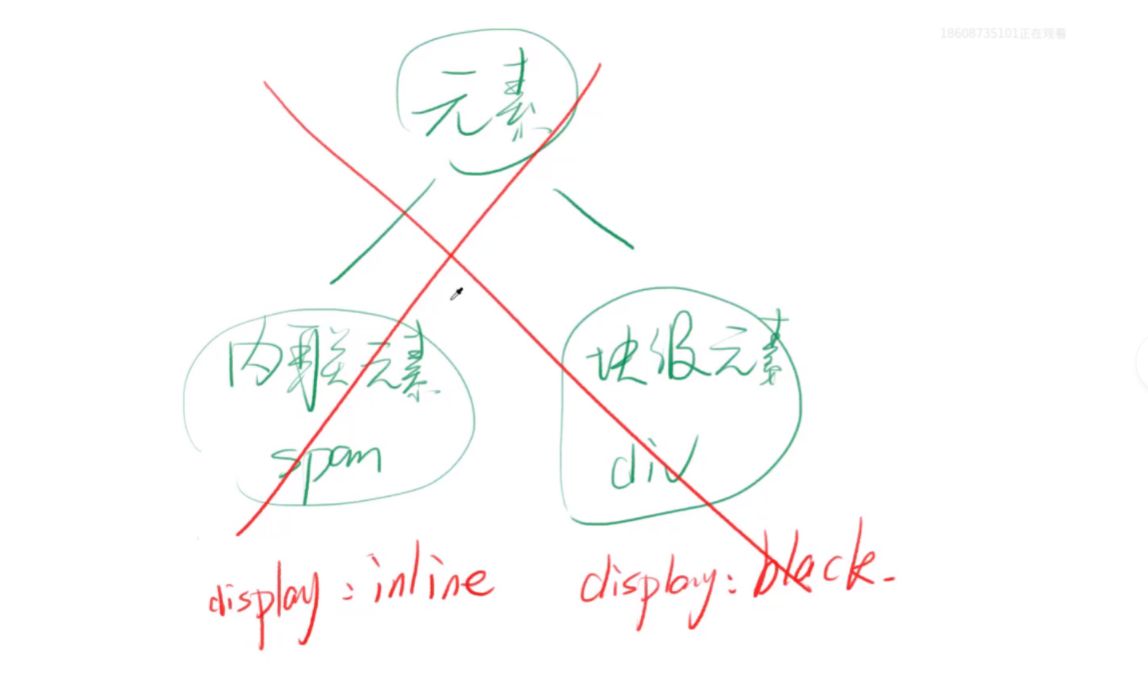 18608735101正在观看
元素
内联元素
块级元素
span
div
display:inline
display:black.